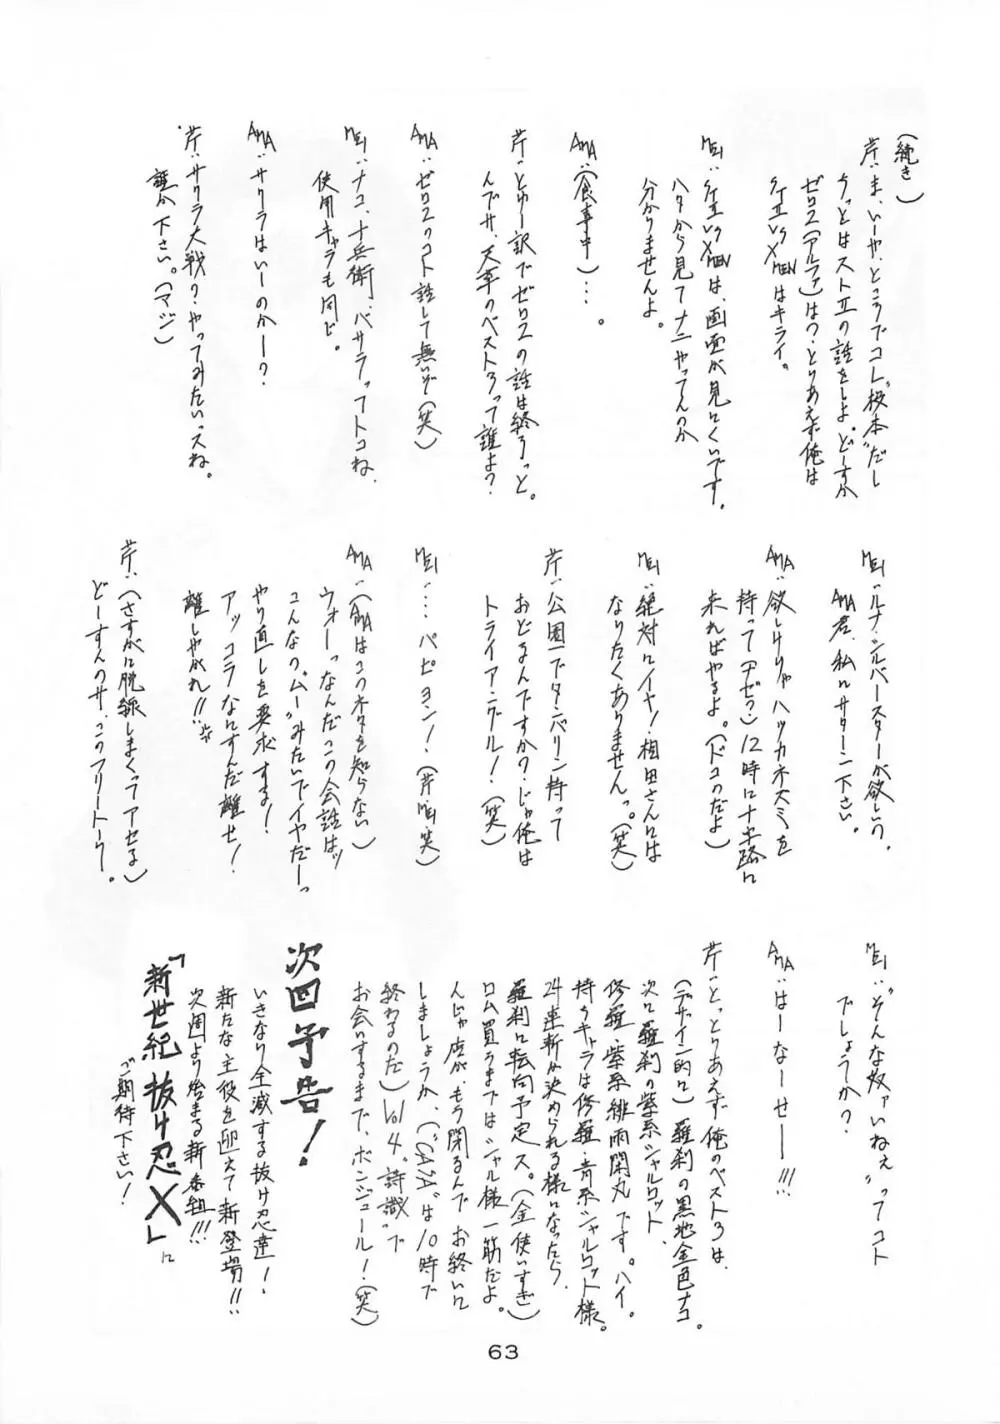 (続き)
芹:ま、いーや、ところでコレ"板本"だし
ちっとはストⅡの話をしよ。どーすか
ゼロ2(アルファ)は?とりあえず俺は
ケエ VS X MENはキライ。
MEI:ケエ VS X MENは、画面が見にくいです。
ハタから見てナニやってんのか
分かりませんよ。
AMA:(食事中)…。
芹:とゆー訳でゼロ2の話は終ろっと。
んでサ、天草のベスト3って誰よ?
AMA:ゼロ2のコト話して無いぞ(笑)
MEI:ナコ、十兵衛、バサラってトコね。
使用キャラも同じ。
AMA:サクラはいーのかー?
芹:サクラ大戦?やってみたいっスね。
誰か下さい。(マジ)
MEI:ルナ・シルバースターが欲しいの。
AMA君、私にサターン下さい。
AMA:欲しけりゃハツカネズミを
持って 12時に十字路に
来ればやるよ。(ドコのだよ)
MEI:絶対にイヤ!相田さんには
なりたくありませんっ。(笑)
芹:公園でタンバリン持って
おどるんですか?じゃ俺は
トライアングル!(笑)
MEI:…パピヨン!(芹・MEI笑)
AMA:(AMAはこのネタを知らない)
ウォーっなんだこの会話はッ
こんなの"ムー"みたいでイヤだーっ
やり直しを要求する!
アッ コラ なにすんだ離せ!
離しやがれ!!
芹:(さすがに脱線しまくってアセる)
どーすんのサ、このフリートーク。
MEI:"そんな奴ァいねぇ"ってコト
でしょうか?
AMA:はーなーせー!!!
芹:とっとりあえず俺のベスト3は、
(デザイン的に)羅刹の黒地金色ナコ。
次に羅刹の紫系シャルロット、
修羅・紫系緋雨閑丸です。ハイ。
持ちキャラは修羅・青系シャルロット様。
24連斬が決められる様になったら、
羅刹に転向予定ス。(金使いすぎ)
ロム買うまではシャル様一筋だよ。
んじゃ店が、もう閉るんで お終いに
しましょうか、("CASA"は10時で
終わるのだ) Vol 4.詩識で
お会いするまで、ボンジュール!(笑)
次回予告!
いきなり全滅する抜け忍達!
新たな主役を迎えて新登場!!
次週より始まる新番組!!!
「新世紀 抜け忍X」に
ご期待下さい!
63